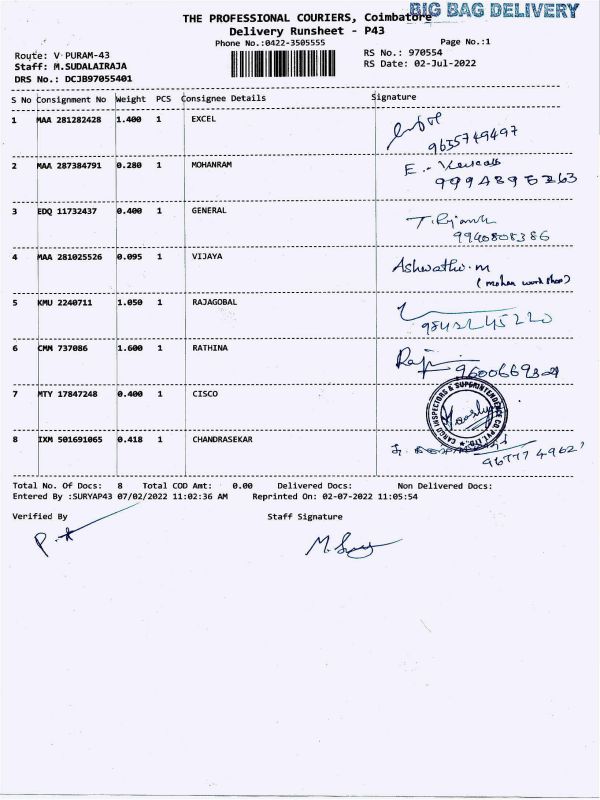 BIG BAG DELIVERY
THE PROFESSIONAL COURIERS, Coimbatore
Delivery Runsheet - P43
Phone No.:0422-3505555 Page No.:1
Route: V PURAM-43 RS No.: 970554
Staff: M.SUDALAIRAJA RS Date: 02-Jul-2022
DRS No.: DCJB97055401
S No Consignment No Weight PCS Consignee Details Signature
1 MAA 281282428 1.400 1 EXCEL
9655749497
2 MAA 287384791 0.280 1 MOHANRAM
3 EDQ 11732437 0.400 1 GENERAL
9940808386
4 MAA 281025526 0.095 1 VIJAYA Ashwathi.m
5 KMU 2240711 1.050 1 RAJAGOBAL
6 CMM 737086 1.600 1 RATHINA
7 MTY 17847248 0.400 1 CISCO
CARGO INSPECTORS & SUPERINTENDENCE CO. PVT. LTD.
8 IXM 501691065 0.418 1 CHANDRASEKAR
Total No. Of Docs: 8 Total COD Amt: 0.00 Delivered Docs: Non Delivered Docs:
Entered By :SURYAP43 07/02/2022 11:02:36 AM Reprinted On: 02-07-2022 11:05:54
Verified By Staff Signature